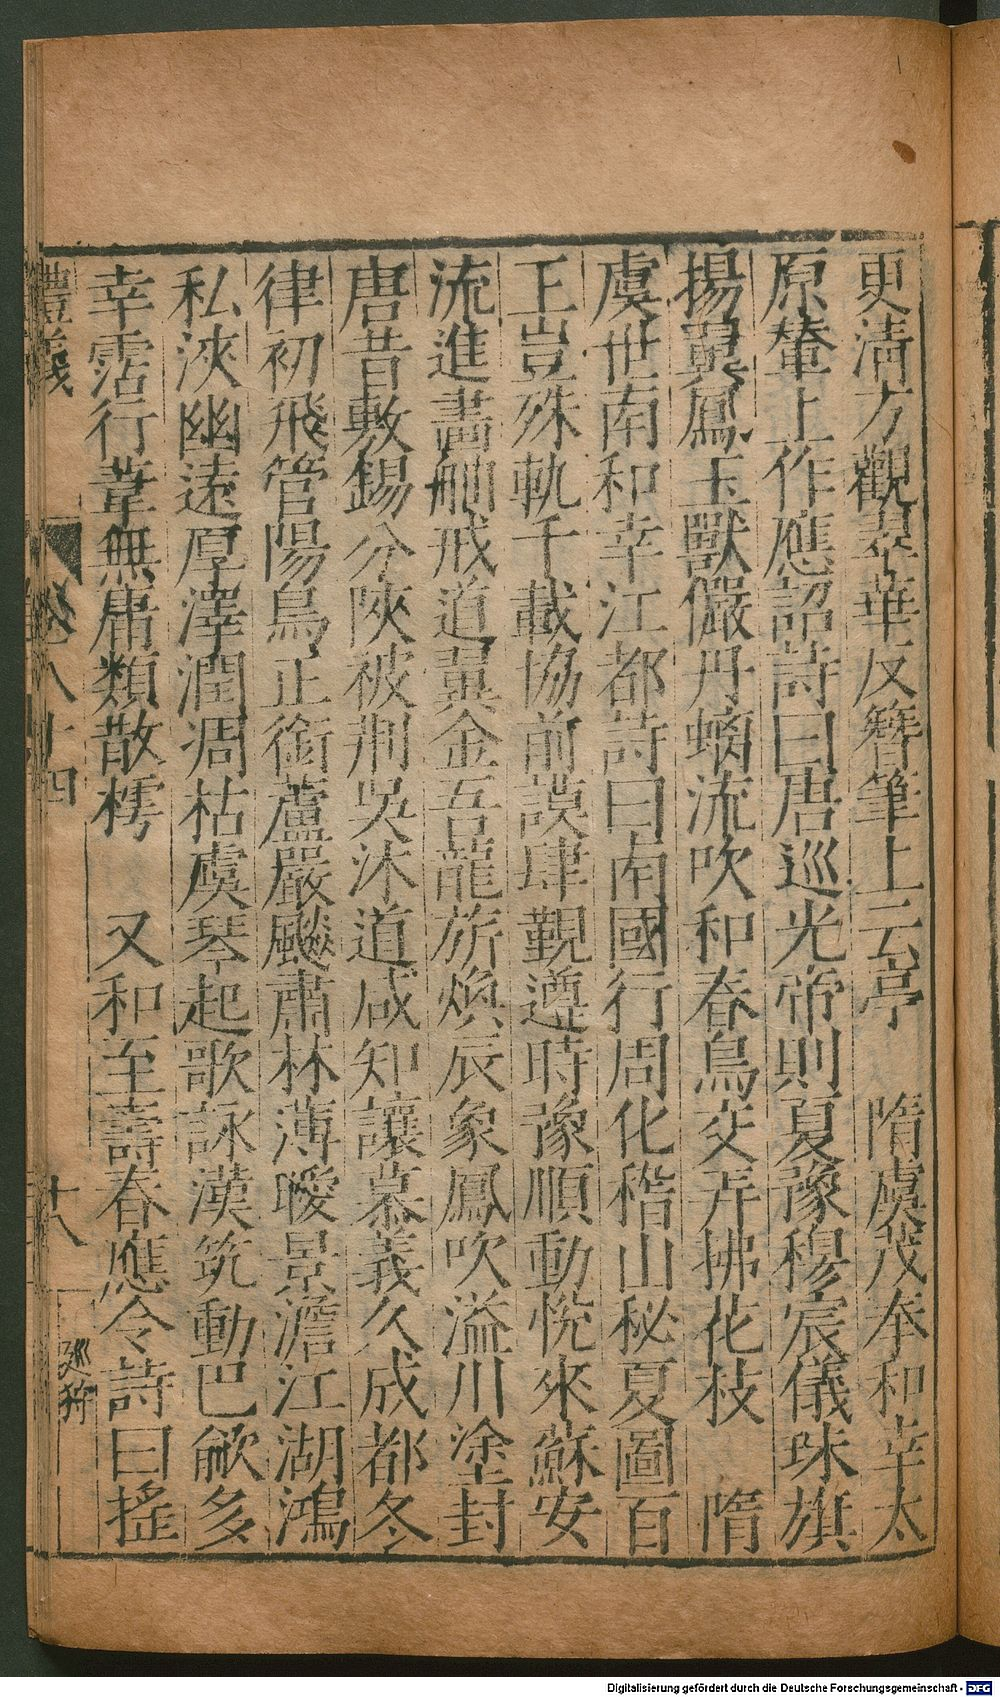 更清方觀翠華反簪筆上云亭　隋虞茂奉和幸太
原輦上作應詔詩曰唐巡光帝則夏豫穆宸儀珠旗
揚翼鳳玉獸儼丹螭流吹和春鳥交弄拂花枝　隋
虞世南和幸江都詩曰南國行周化稽山秘夏圖百
王豈殊軌千載協前謨肆覲遵時豫順動悅來蘇安
流進畵舸戒道翼金吾龍旂煥辰象鳳吹溢川塗封
唐昔敷錫分陝被荆吳沐道咸知讓慕義久成都冬
律初飛管陽鳥正銜蘆嚴飈肅林薄曖景澹江湖鴻
私浹幽遠厚澤潤凋枯虞琴起歌詠漢筑動巴歈多
幸霑行葦無庸類散樗　又和至壽春應令詩曰搖
禮義 卷八十四 十八 巡狩
Digitalisierung gefördert durch die Deutsche Forschungsgemeinschaft - DFG